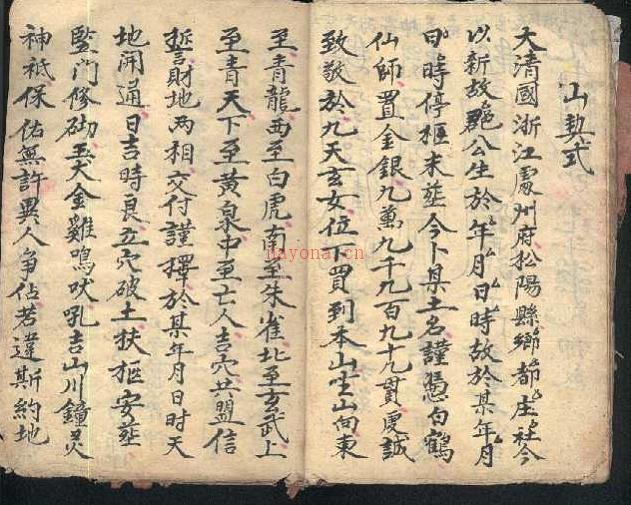 山契式
大清國浙江處州府松陽縣鄉都庄社今
以新故 公生於年月日時故於某年月
日時停柩未塟今卜某土名謹憑白鶴
仙師置金銀九萬九千九百九十九貫虔誠
致敬於九天玄女位下買到本山坐山向東
至青龍西至白虎南至朱雀北至玄武上
至青天下至黃泉中至亡人吉穴共盟信
誓財地两相交付謹擇於某年月日時天
地開通日吉時良立穴破土扶柩安塟
監門修砌玉犬金雞鳴吠吼吉山川鐘灵
神祇保佑無許異人爭佔若違斯約地
nayona.cn